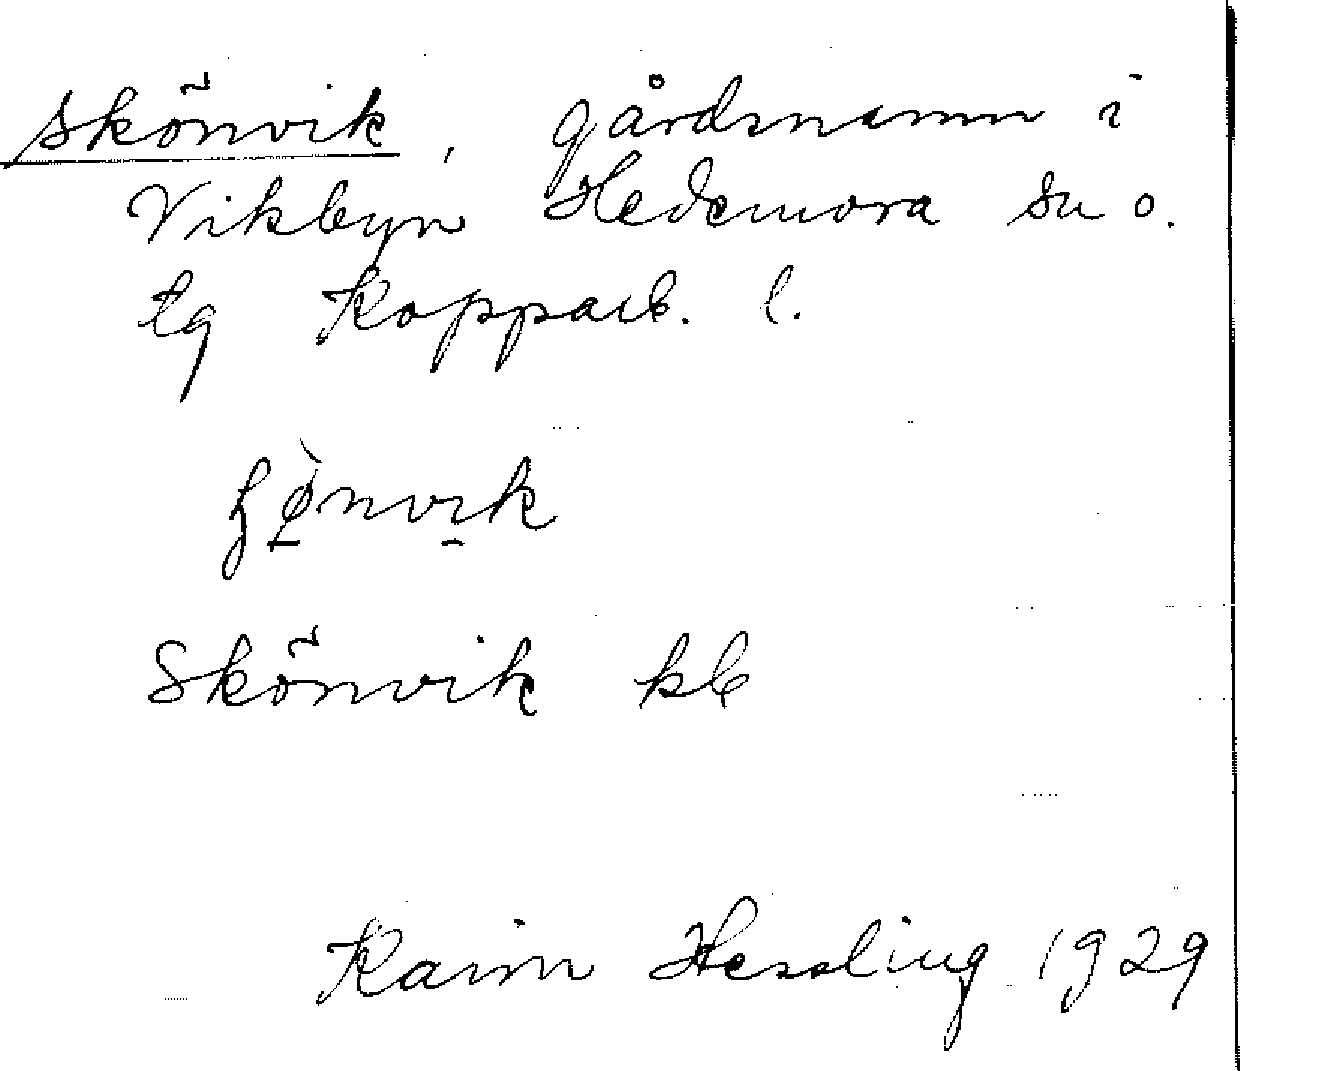 Skönvik, gårdsnamn i
Vikbyn Hedemora sn o.
tg Kopparb. l.
Skönvik kb
Karin Hessling 1929